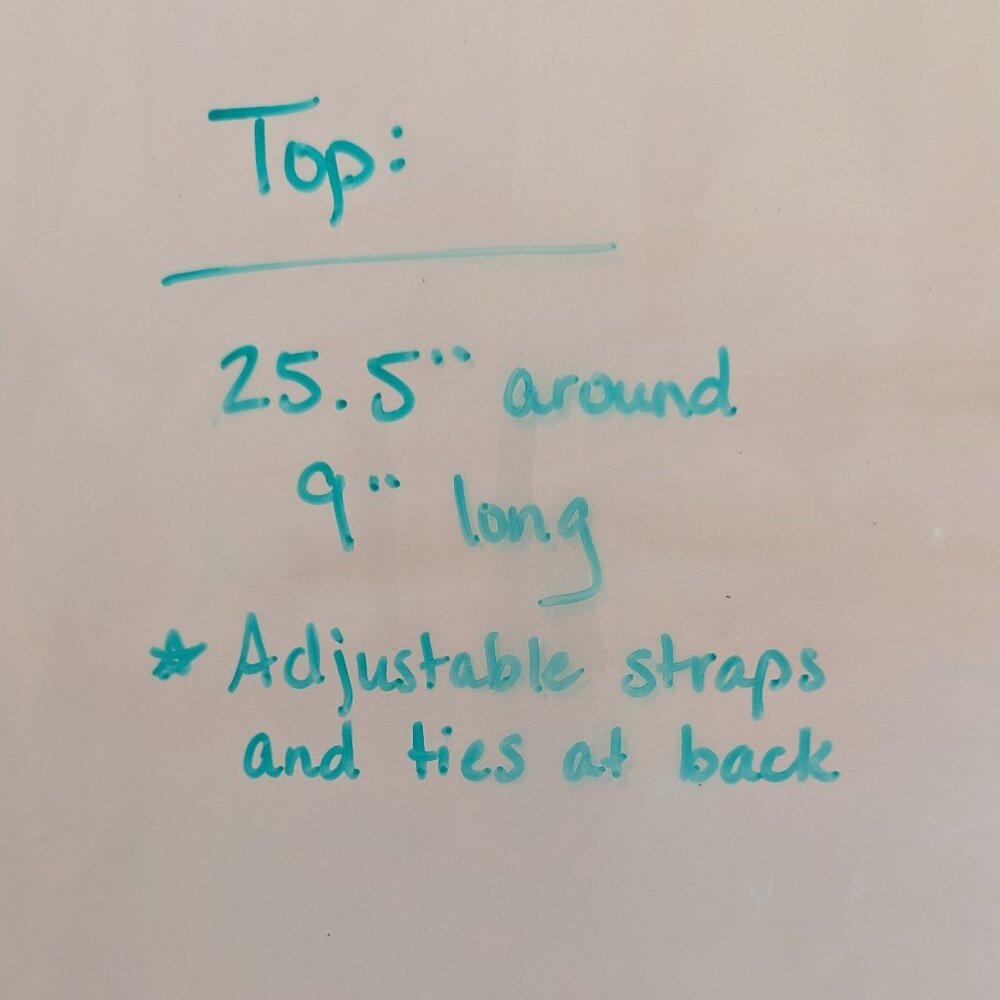 Top:
25.5" around
9" long
* Adjustable straps
and ties at back